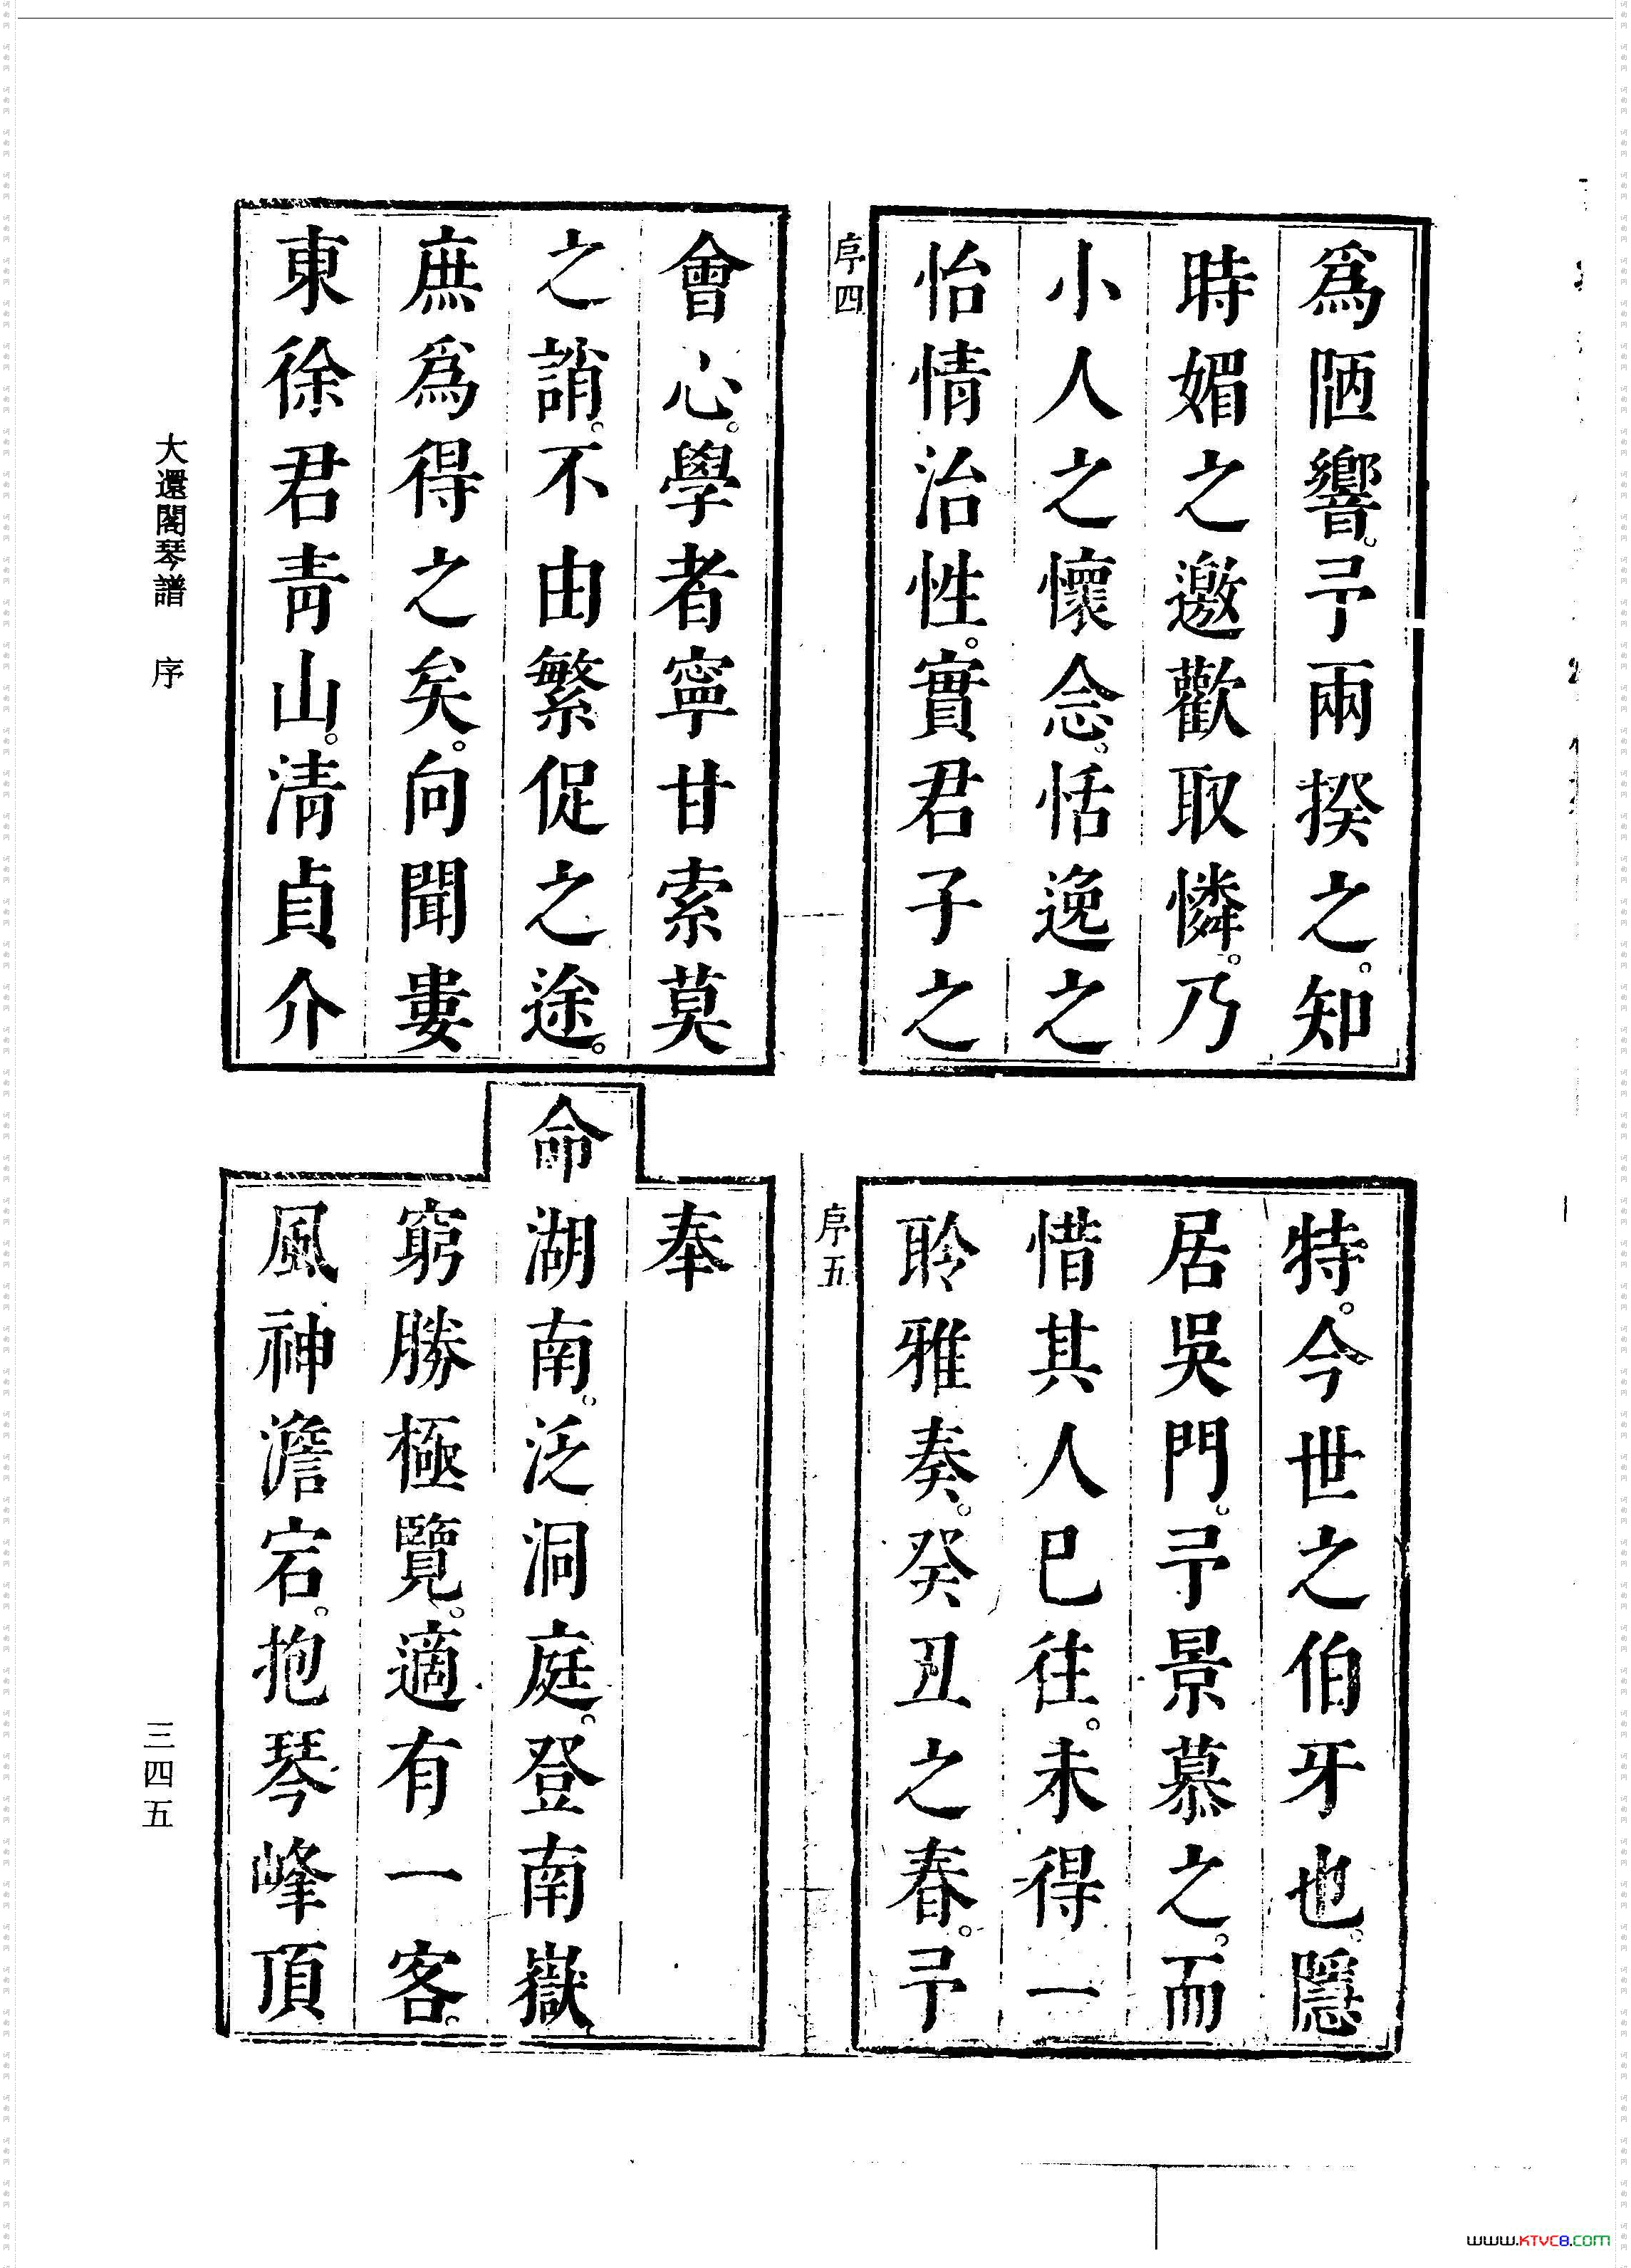 爲陋響。予兩揆之。知
時媚之邀歡取憐。乃
小人之懷念。恬逸之
怡情治性。實君子之
序四
會心。學者寧甘索莫
之誚。不由繁促之途。
庶爲得之矣。向聞婁
東徐君青山。清貞介
特。今世之伯牙也。隱
居吳門。予景慕之。而
惜其人已往。未得一
聆雅奏。癸丑之春。予
序五
奉
命湖南。泛洞庭。登南嶽
窮勝極覽。適有一客。
風神澹宕。抱琴峰頂
大還閣琴譜 序
三四五
www.KTVC8.com